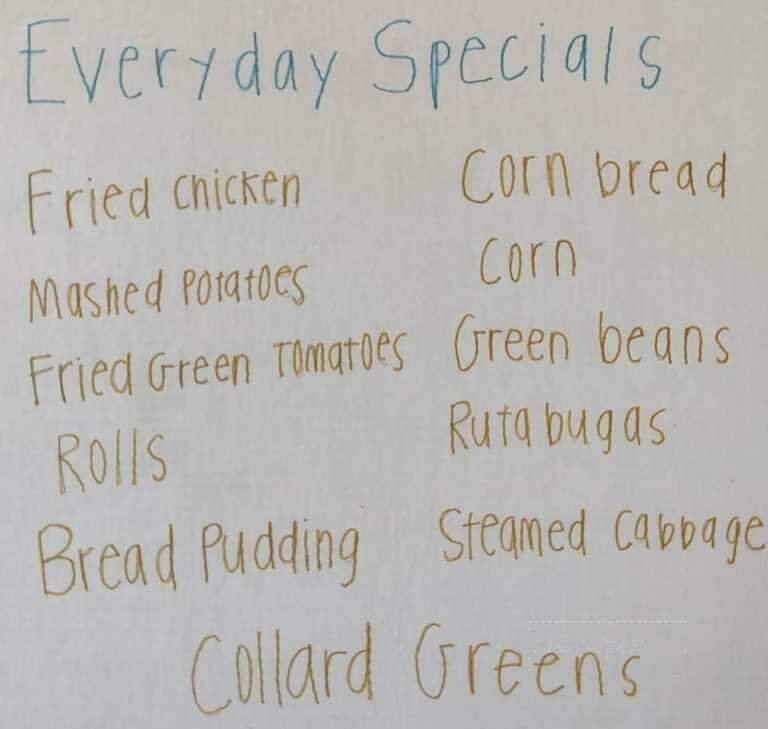 Everyday Specials
Fried chicken
Mashed Potatoes
Fried Green Tomatoes
Rolls
Bread Pudding
Corn bread
Corn
Green beans
Rutabugas
Steamed Cabbage
Collard Greens